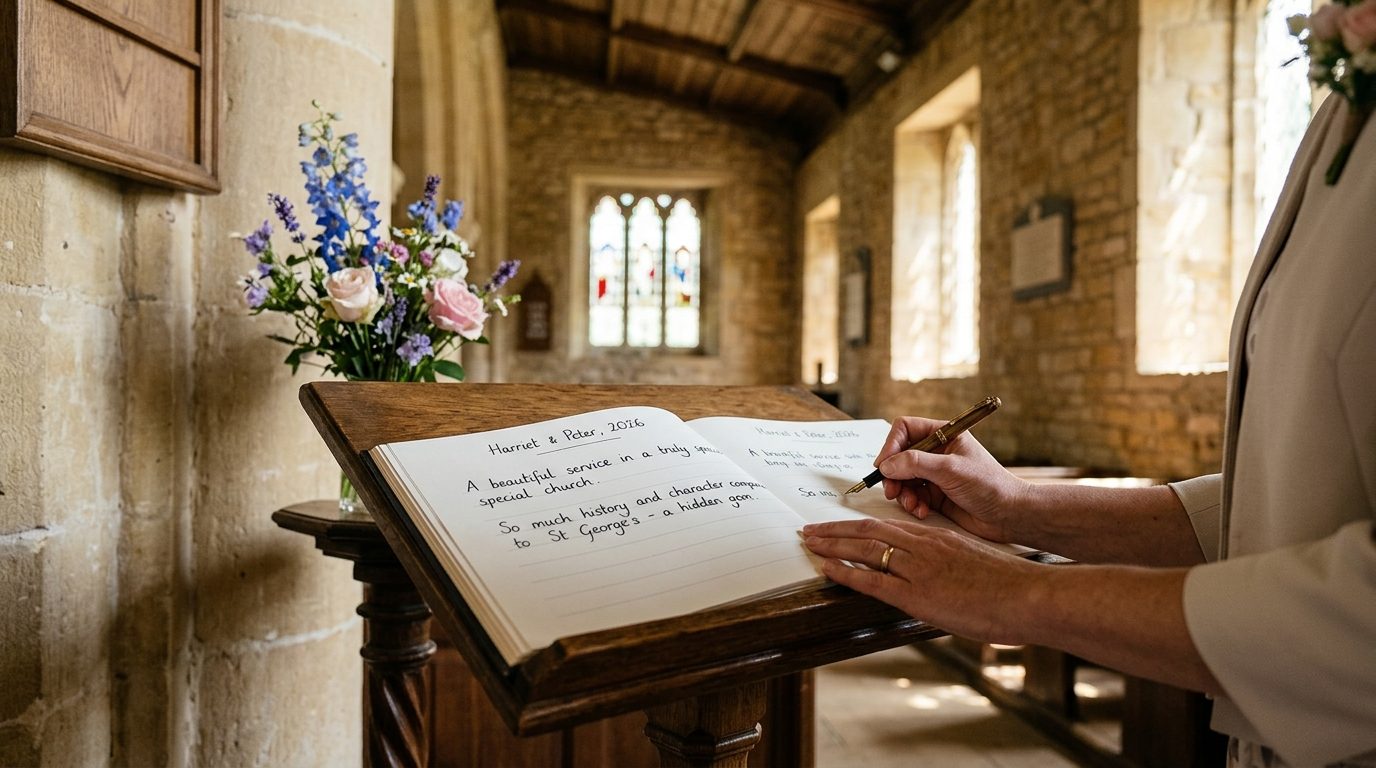 Harriet & Peter, 2026
A beautiful service in a truly
special church.
So much history and character
to St George's – a hidden gon.
Harriet & Peter, 2026
A beautiful service